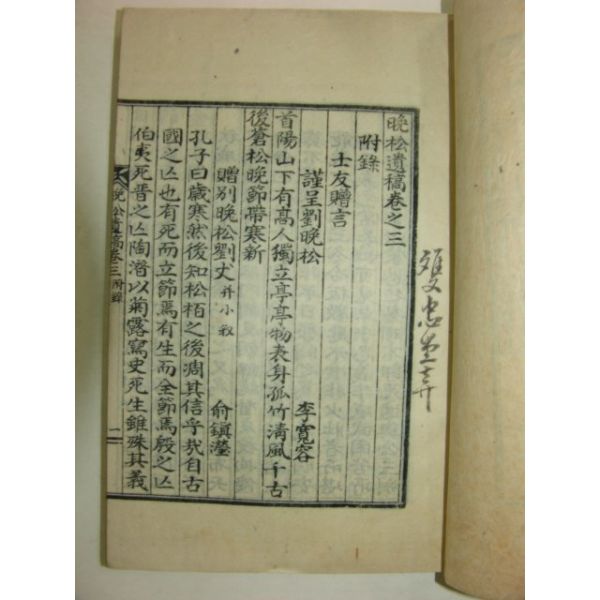 晚松遺稿卷之三
附錄
士友贈言
謹呈劉晚松 李寬容
首陽山下有高人獨立亭亭物表身孤竹淸風千古
後蒼松晚節帶寒新
贈別晚松劉丈 幷小敍 俞鎭瀅
孔子曰歲寒然後知松栢之後凋其信乎哉自古
國之亾也有死而立節焉有生而全節焉殷之亾
伯夷死晋之亾陶潛以菊露寫史死生雖殊其義
晚松遺稿卷三 附錄 一
忠